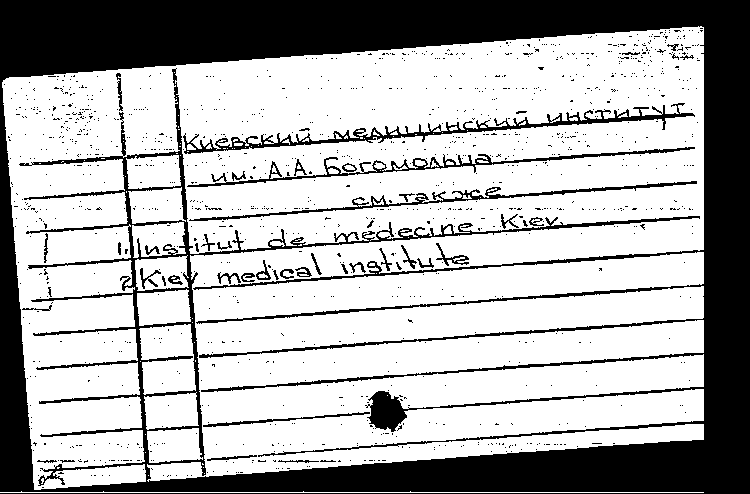 Киевский медицинский институт
им. А.А. Богомольца
см. также
1. Institut de médecine. Kiev.
2. Kiev medical institute